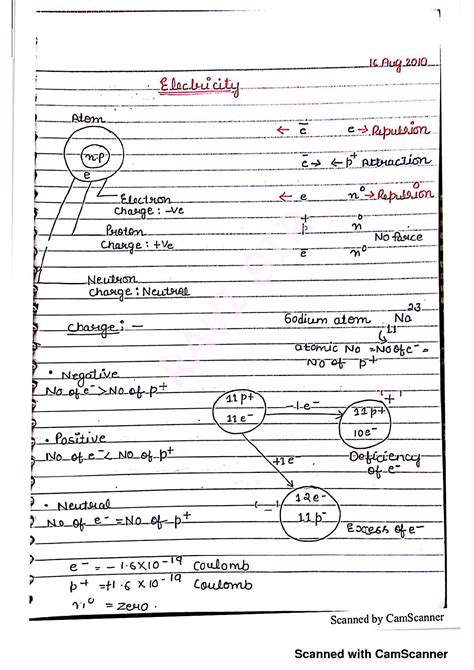 16 Aug 2010
Electricity
Atom
n·p
e
← e⁻ e → Repulsion
e⁻ → ← p⁺ Attraction
← e n⁰ → Repulsion
p⁺ n⁰
e⁻ n⁰ No Force
Electron
Charge : -Ve
Proton
Charge : +Ve
Neutron
Charge : Neutral
Charge :-
Sodium atom Na
23
11
atomic No = No of e⁻ =
No of p⁺
• Negative
No of e⁻ > No of p⁺
11p+
11e⁻
-1e⁻
(+)
11p+
10e⁻
Deficiency
of e⁻
• Positive
No of e⁻ < No of p⁺
+1e⁻
• Neutral
No of e⁻ = No of p⁺
(-)
12e⁻
11p⁻
Excess of e⁻
e⁻ = -1.6×10⁻¹⁹ Coulomb
p⁺ = +1.6×10⁻¹⁹ Coulomb
n⁰ = Zero.
Scanned by CamScanner
Scanned with CamScanner